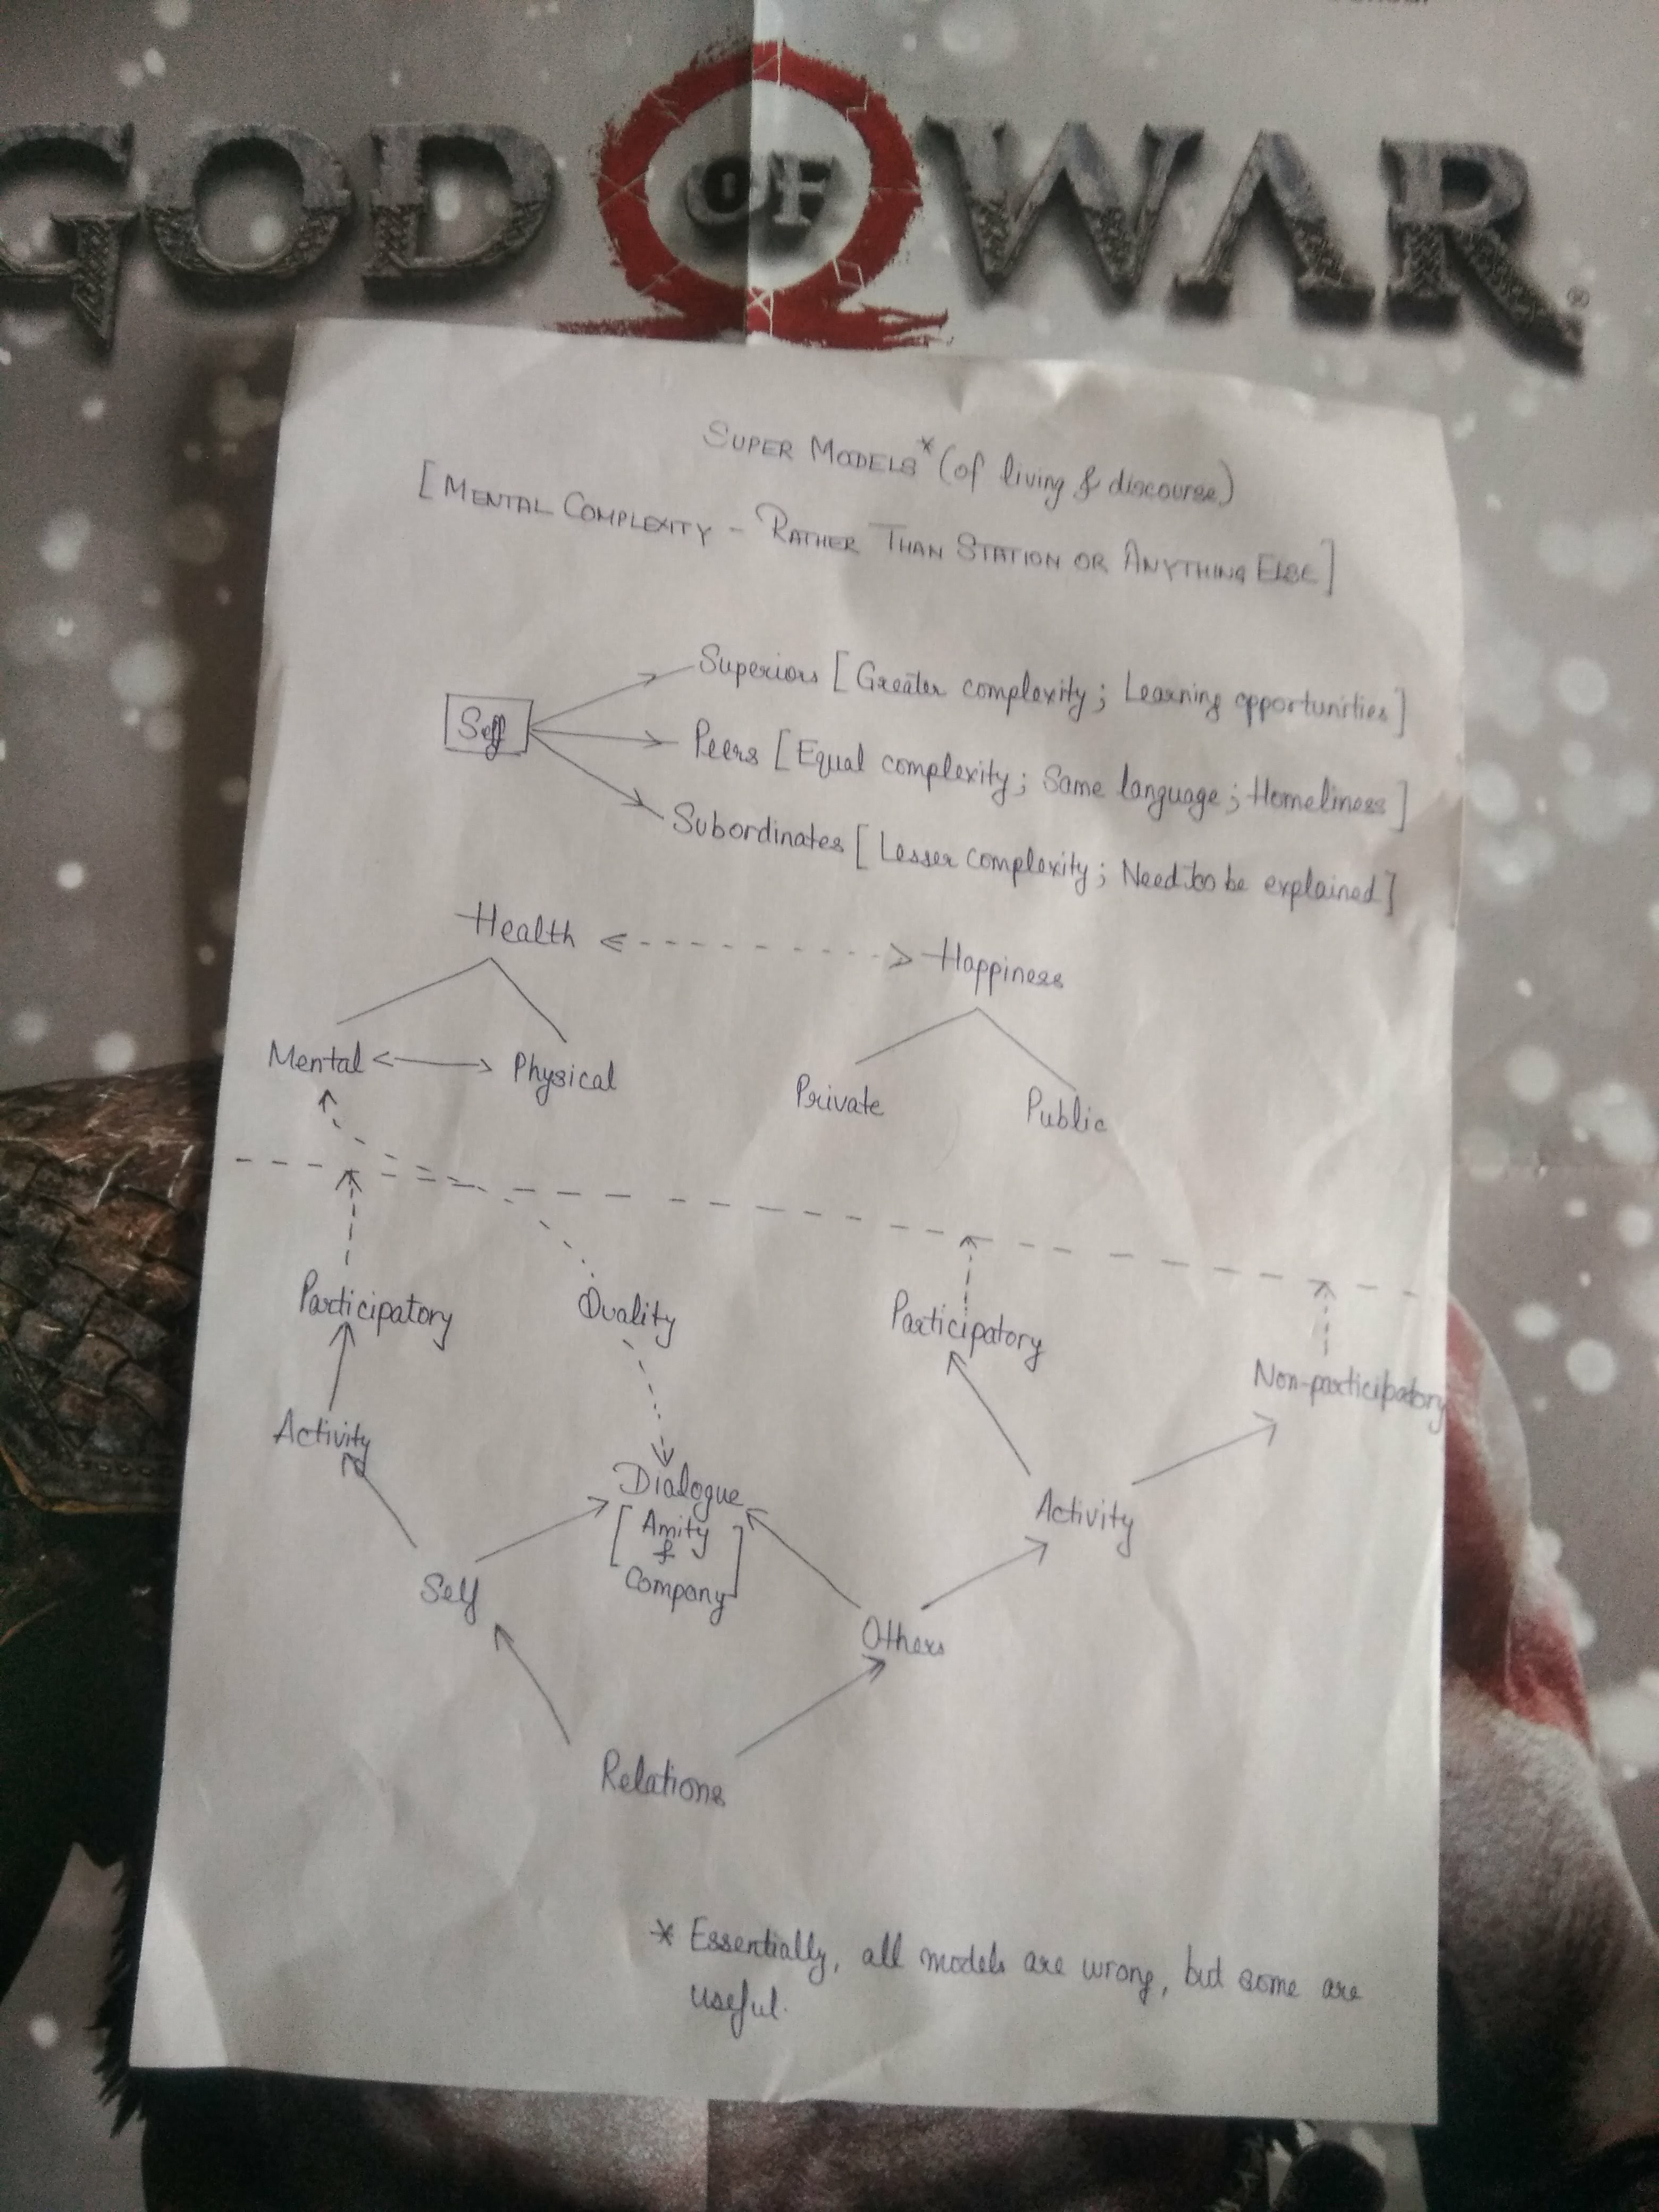 GOD OF WAR
®
SUPER MODELS* (of living & discourse)
[MENTAL COMPLEXITY - RATHER THAN STATION OR ANYTHING ELSE]
Self
Superiors [Greater complexity; Learning opportunities]
Peers [Equal complexity; Same language; Homeliness]
Subordinates [Lesser complexity; Need to be explained]
Health
Happiness
Mental
Physical
Private
Public
Participatory
Quality
Participatory
Non-participatory
Activity
Dialogue
[Amity
&
Company]
Activity
Self
Others
Relations
* Essentially, all models are wrong, but some are
useful.